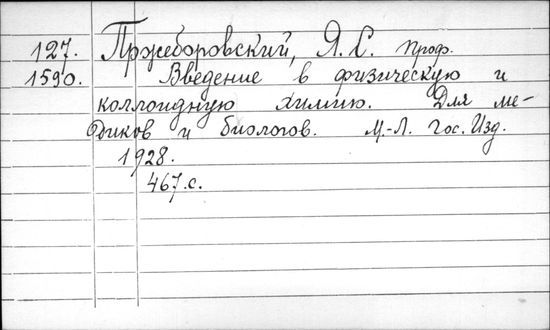 127. Пржеборовский, Я.С. проф.
1590. Введение в физическую и
коллоидную химию. Для ме-
диков и биологов. М.-Л. Гос. Изд.
1928.
467.с.